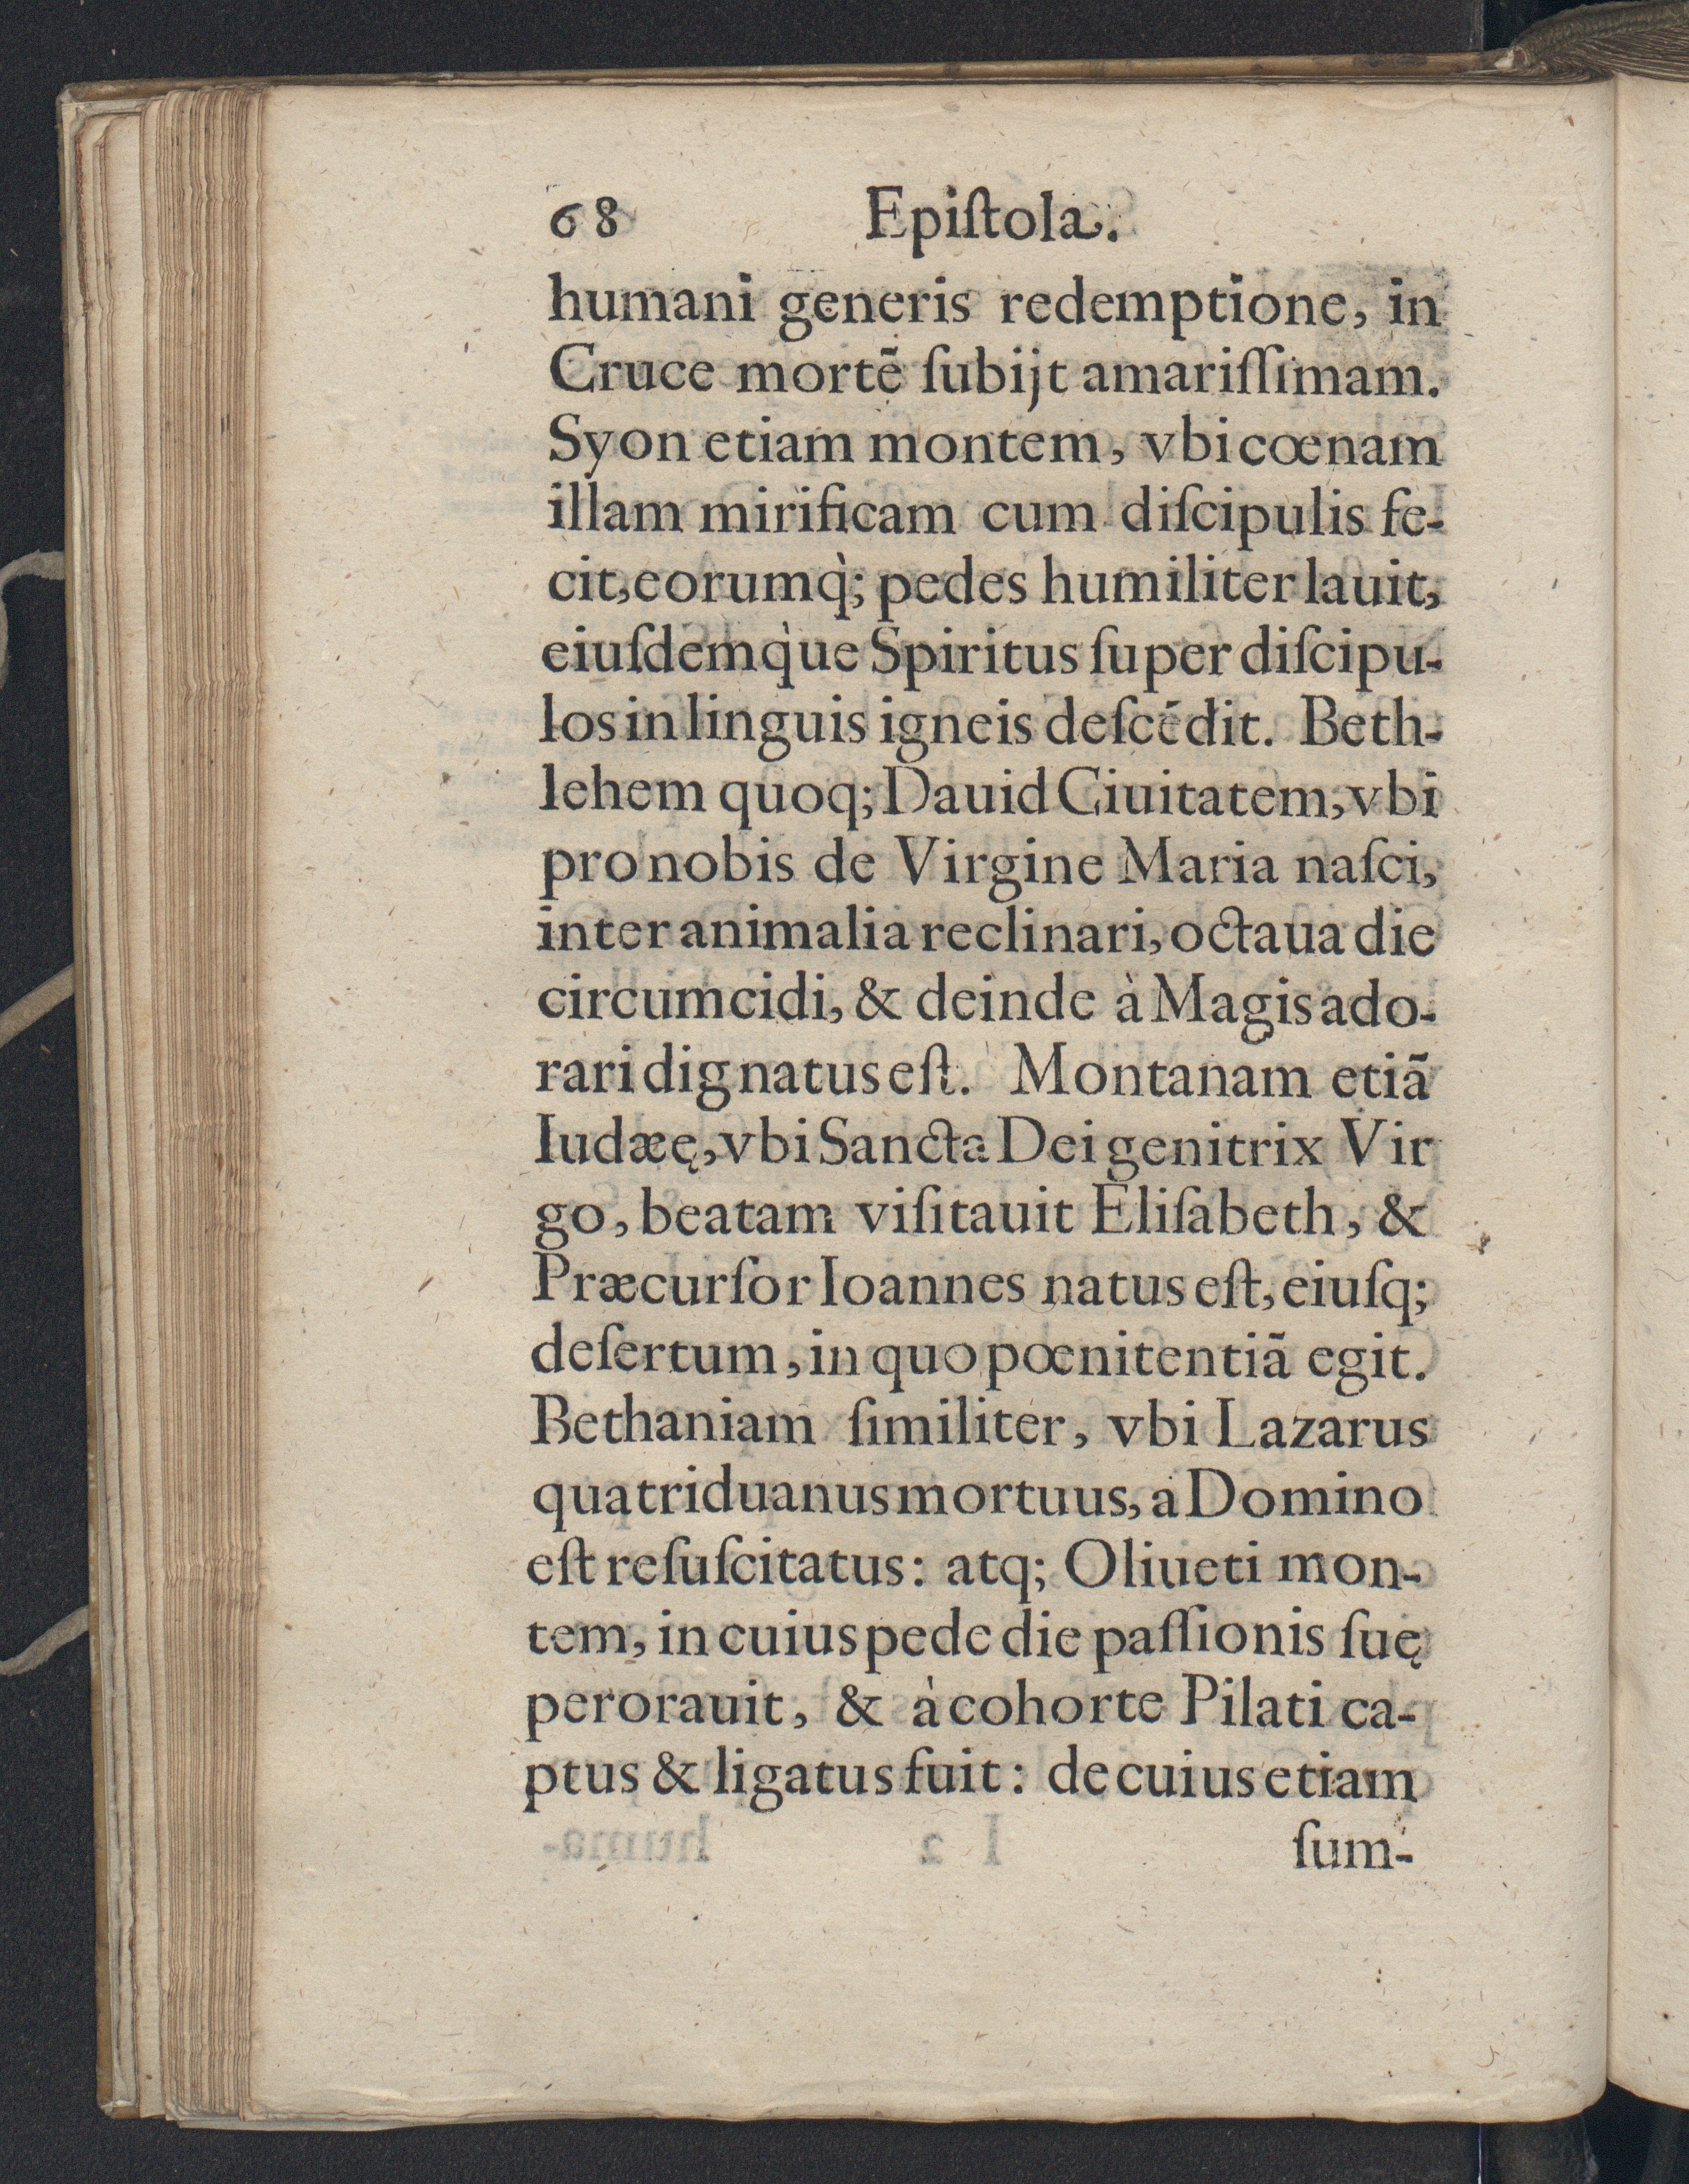 68 Epiſtola.
humani generis redemptione, in
Cruce mortē ſubijt amariſſimam.
Syon etiam montem, vbi cœnam
illam mirificam cum diſcipulis fe-
cit, eorumq̀; pedes humiliter lauit,
eiuſdemq̀ue Spiritus ſuper diſcipu-
los in linguis igneis deſcēdit. Beth-
lehem quoq; Dauid Ciuitatem, vbi
pro nobis de Virgine Maria naſci,
inter animalia reclinari, octaua die
circumcidi, & deinde à Magis ado-
rari dignatus eſt. Montanam etiã
Iudæę, vbi Sancta Dei genitrix Vir
go, beatam viſitauit Eliſabeth, &
Præcurſor Ioannes natus eſt, eiuſq;
deſertum, in quo pœnitentiã egit.
Bethaniam ſimiliter, vbi Lazarus
quatriduanus mortuus, a Domino
eſt reſuſcitatus: atq; Oliueti mon-
tem, in cuius pede die paſſionis ſuę
perorauit, & à cohorte Pilati ca-
ptus & ligatus fuit: de cuius etiam
ſum-